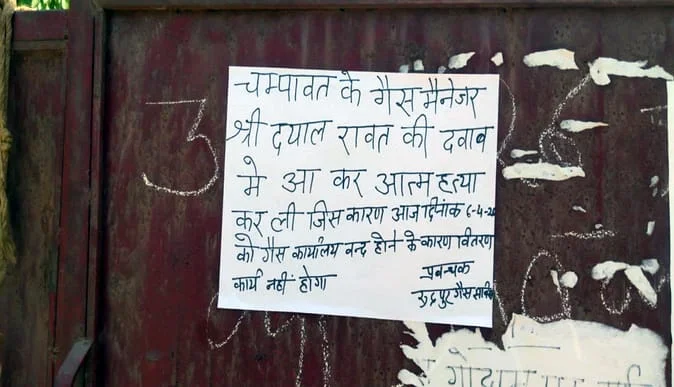 3
चम्पावत के गैस मैनेजर
श्री दयाल रावत की दवाव
मे आ कर आत्महत्या
कर ली जिस कारण आज दिनांक 6-4-20
को गैस कार्यालय वन्द होने के कारण वितरण
कार्य नहीं होगा
प्रबन्धक
रुद्रपुर गैस सर्विस
गोदाम